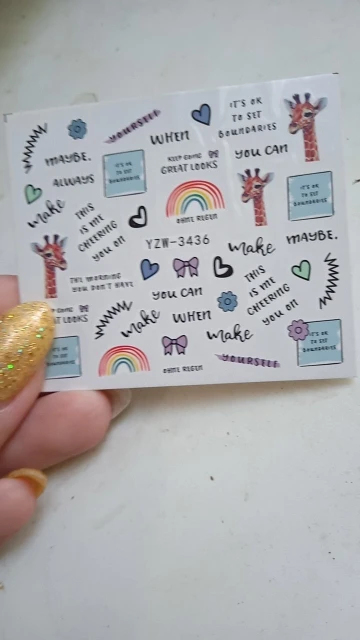 IT'S OK
TO SET
BOUNDARIES
YOURSELF
WHEN
MAYBE.
KEEP GOING
GREAT LOOKS
YOU CAN
ALWAYS
IT'S OK
TO SET
BOUNDARIES
IT'S OK
TO SET
BOUNDARIES
make
THIS
IS ME
CHEERING
YOU ON
OHNE REGEN
YZW-3436
make
MAYBE.
THE MORNING
YOU DON'T HAVE
YOU CAN
THIS
IS ME
CHEERING
YOU ON
GOING
T LOOKS
make
WHEN
make
IT'S OK
TO SET
BOUNDARIES
IT'S OK
TO SET
BOUNDARIES
OHNE REGEN
YOURSELF